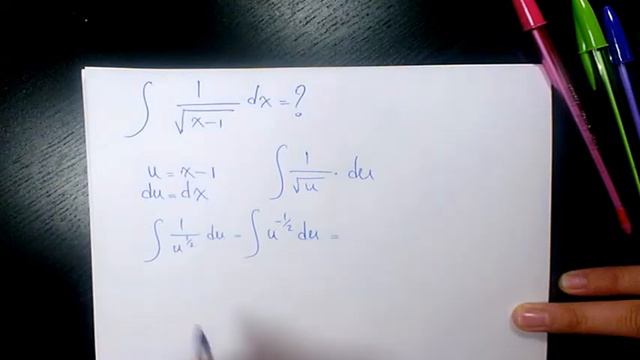 ∫ 1/√(x-1) dx = ?
u = x-1 ∫ 1/√u · du
du = dx
∫ 1/u^½ du - ∫ u^-½ du =